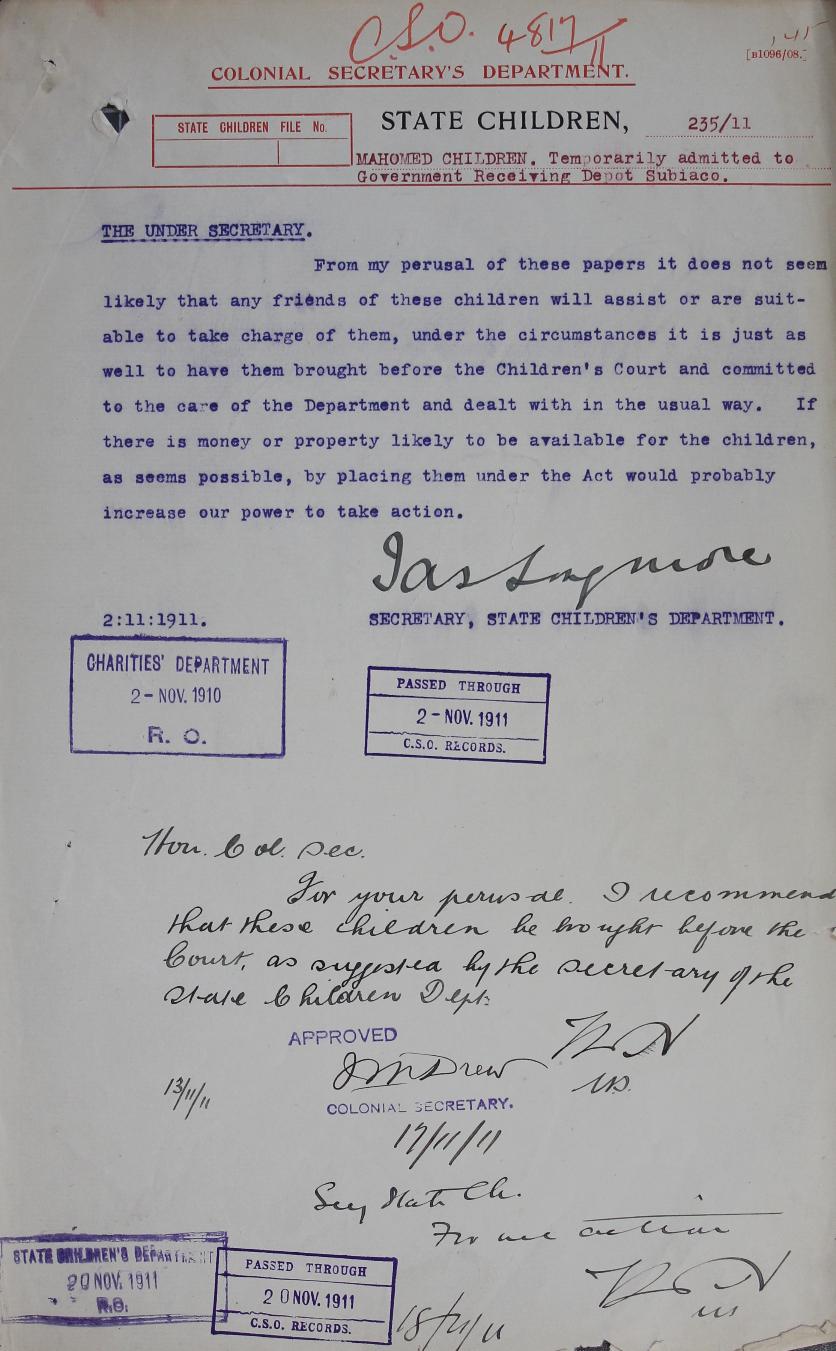 C.S.O. 4817/11
[B1096/08.]
COLONIAL SECRETARY'S DEPARTMENT.
STATE CHILDREN FILE No.
STATE CHILDREN, 235/11
MAHOMED CHILDREN. Temporarily admitted to
Government Receiving Depot Subiaco.
THE UNDER SECRETARY.
From my perusal of these papers it does not seem
likely that any friends of these children will assist or are suit-
able to take charge of them, under the circumstances it is just as
well to have them brought before the Children's Court and committed
to the care of the Department and dealt with in the usual way. If
there is money or property likely to be available for the children,
as seems possible, by placing them under the Act would probably
increase our power to take action.
Jas Longmore
2:11:1911.
SECRETARY, STATE CHILDREN'S DEPARTMENT.
CHARITIES' DEPARTMENT
2- NOV. 1910
R. O.
PASSED THROUGH
2- NOV. 1911
C.S.O. RECORDS.
Hon. Col. Sec.
For your perusal. I recommend
that these children be brought before the
Court, as suggested by the Secretary of the
State Children Dept.
APPROVED
J M Drew
US.
13/11/11
COLONIAL SECRETARY.
17/11/11
Secy State Ch.
For action
US
STATE CHILDREN'S DEPARTMENT
20 NOV. 1911
R.O.
PASSED THROUGH
20 NOV. 1911
C.S.O. RECORDS.
18/11/11